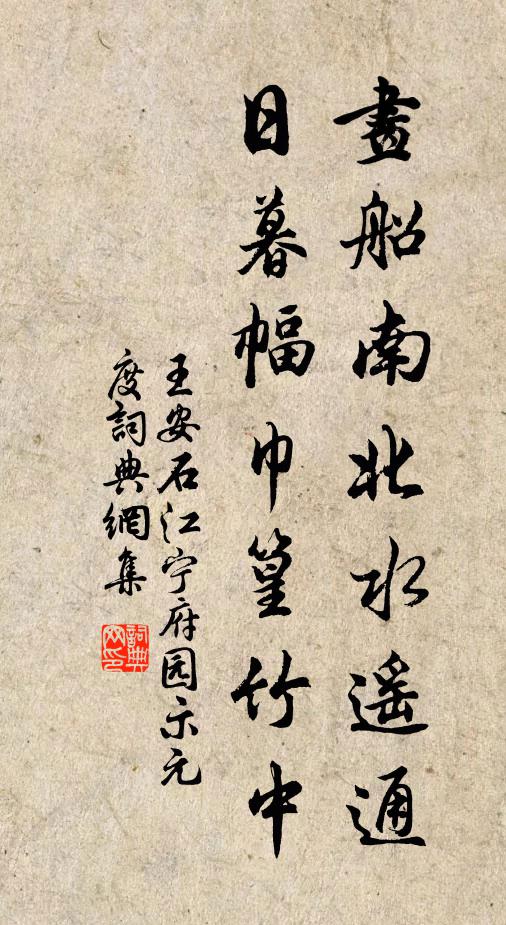 畫船南北水遙通
日暮幅巾篁竹中
王安石江宁府园示元
度詞典網集
詞典
网印